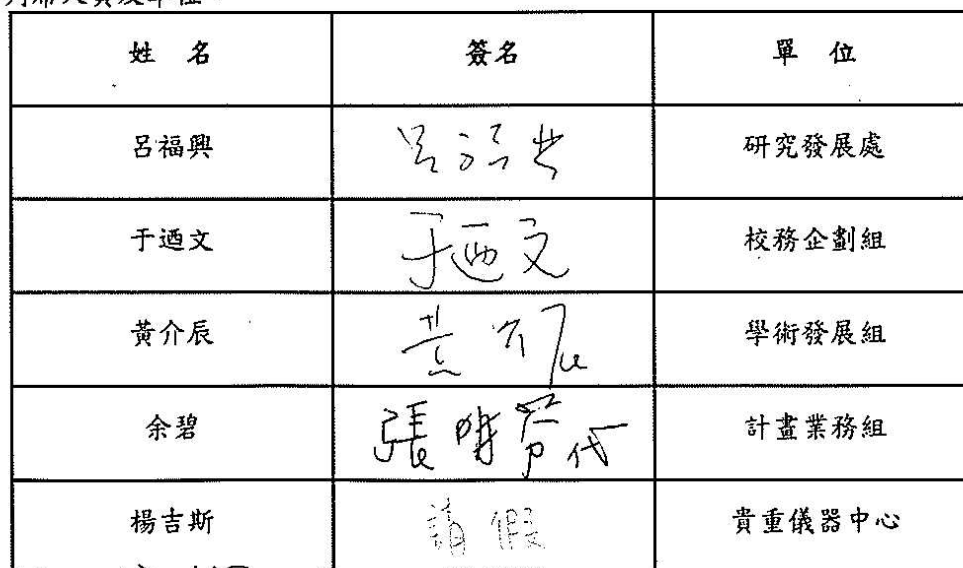 列席人員及單位：
姓 名 簽名 單 位
呂福興 呂福興 研究發展處
于迺文 于迺文 校務企劃組
黃介辰 黃介辰 學術發展組
余碧 張 代 計畫業務組
楊吉斯 請假 貴重儀器中心